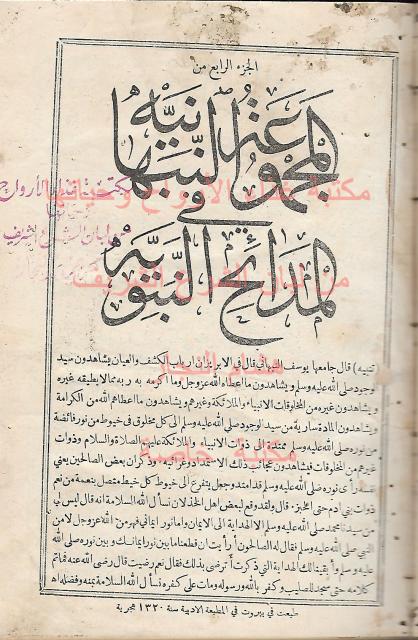 الجزء الرابع من
المجموعة النبهانية
في
المدائح النبوية
مكتبة غذاء الأرواح وحياتها
من لبان الضرع الشريف
النجار
مكتبة خاصة
(تنبيه) قال جامعها يوسف النبهاني قال في الابريز ان ارباب الكشف والعيان يشاهدون سيد
الوجود صلى الله عليه وسلم ويشاهدون ما اعطاه الله عز وجل وما اكرمه به ربه مما لا يطيقه غيره
ويشاهدون غيره من المخلوقات الانبياء والملائكة وغيرهم ويشاهدون ما اعطاهم الله من الكرامة
ويشاهدون المادة سارية من سيد الوجود صلى الله عليه وسلم الى كل مخلوق في خيوط من نور فائضة
من نوره صلى الله عليه وسلم ممتدة الى ذوات الانبياء والملائكة عليهم الصلاة والسلام وذوات
غيرهم من المخلوقات فيشاهدون عجائب ذلك الاستمداد وغرائبه وذكر ان بعض الصالحين يعني
نفسه رأى نوره صلى الله عليه وسلم قد امتد وجعل يتفرع الى خيوط كل خيط متصل بنعمة من نعم
ذوات بني آدم حتى الخبز قال ولقد وقع لبعض اهل الخذلان نسأل الله السلامة انه قال ليس لي
من سيدنا محمد صلى الله عليه وسلم الا الهداية الى الايمان واما نور ايماني فهو من الله عز وجل لا من
النبي صلى الله عليه وسلم فقال له الصالحون أرأيت ان قطعنا ما بين نور ايمانك وبين نوره صلى الله
عليه وسلم وأبقينا لك الهداية التي ذكرت أترضى بذلك فقال نعم رضيت قال رضي الله عنه فما تم
كلامه حتى سجد للصليب وكفر بالله ورسوله ومات على كفره نسأل الله السلامة بمنه وفضله اه
طبعت في بيروت في المطبعة الادبية سنة ١٣٢٠ هجرية